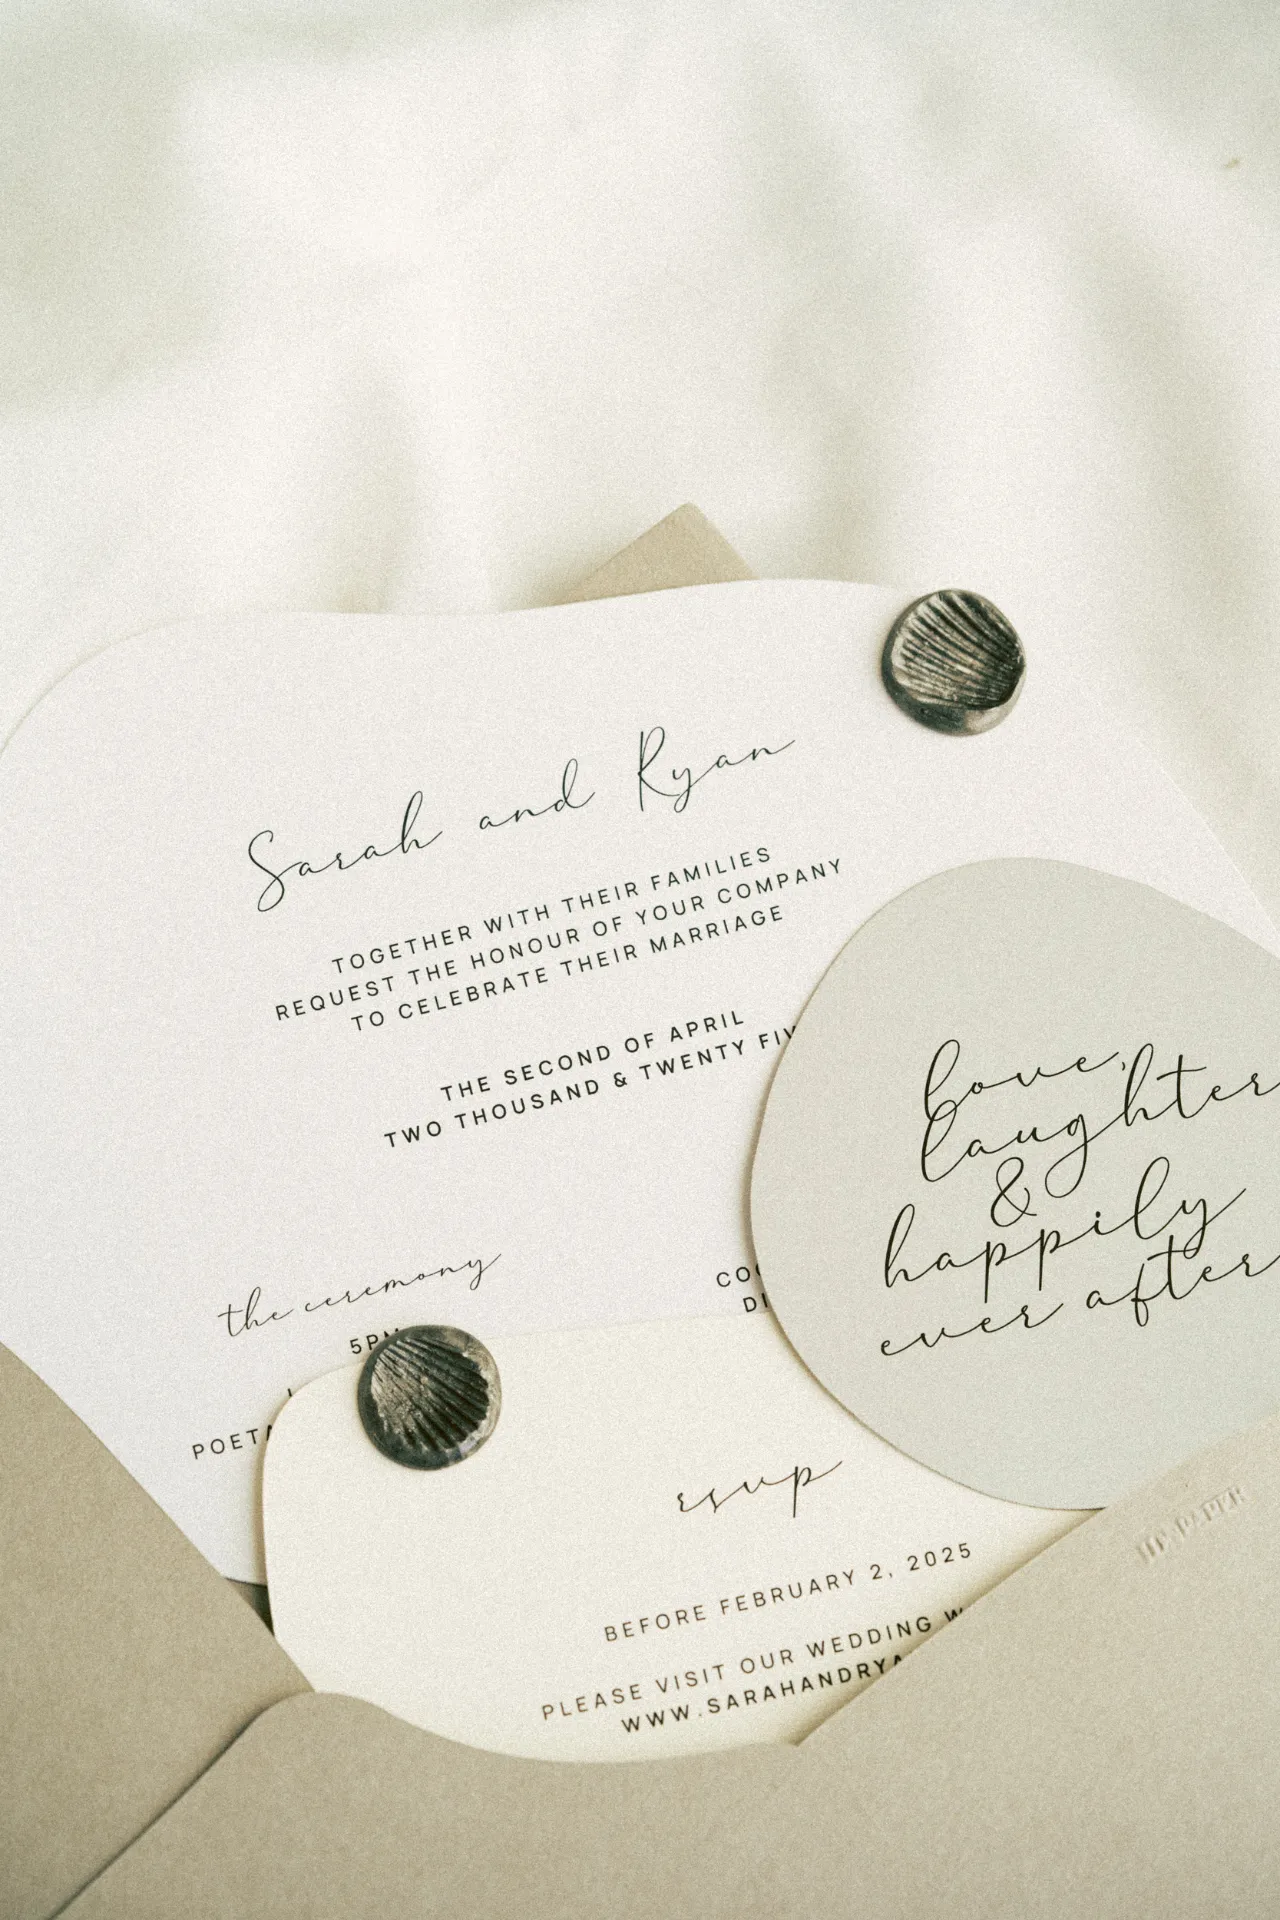 Sarah and Ryan
TOGETHER WITH THEIR FAMILIES
REQUEST THE HONOUR OF YOUR COMPANY
TO CELEBRATE THEIR MARRIAGE
THE SECOND OF APRIL
TWO THOUSAND & TWENTY
the ceremony
love,
laughter
&
happily
ever after
rsvp
BEFORE FEBRUARY 2, 2025
PLEASE VISIT OUR WEDDING
WWW.SARAHANDRYA
PAPER